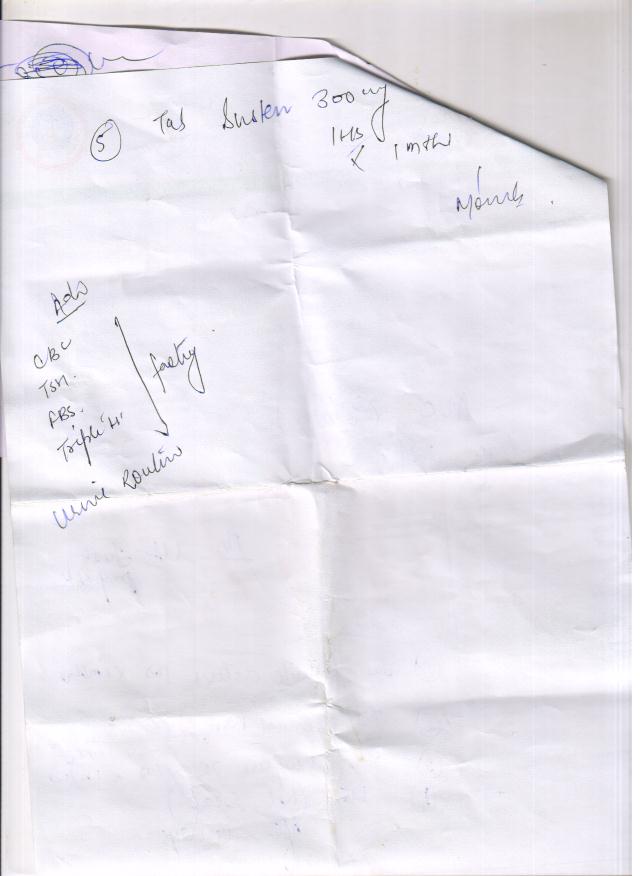 5 Tab Susten 300 mg
1 HS
x 1 mth
Adv
CBC
TSH.
FBS.
Triple H.
fasting
Urine Routine